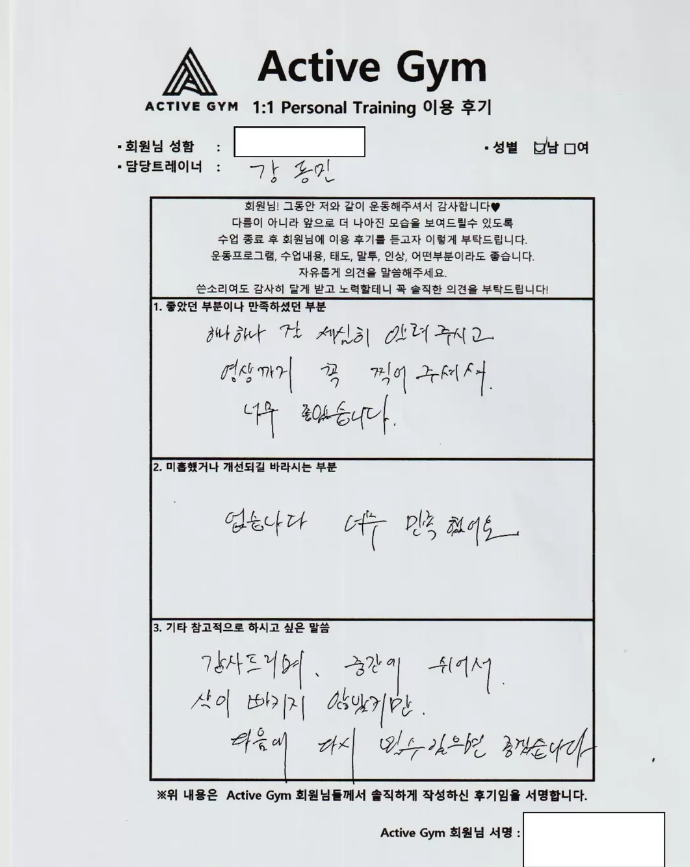 Active Gym
ACTIVE GYM 1:1 Personal Training 이용 후기
▪ 회원님 성함 :
▪ 성별 ☑남 □여
▪ 담당트레이너 : 강동민
회원님! 그동안 저와 같이 운동해주셔서 감사합니다♥
다름이 아니라 앞으로 더 나아진 모습을 보여드릴수 있도록
수업 종료 후 회원님에 이용 후기를 듣고자 이렇게 부탁드립니다.
운동프로그램, 수업내용, 태도, 말투, 인상, 어떤부분이라도 좋습니다.
자유롭게 의견을 말씀해주세요.
쓴소리여도 감사히 달게 받고 노력할테니 꼭 솔직한 의견을 부탁드립니다!
1. 좋았던 부분이나 만족하셨던 부분
하나하나 잘 세심히 알려 주시고
영상까지 꼭 찍어 주셔서.
너무 좋았습니다.
2. 미흡했거나 개선되길 바라시는 부분
없습니다 너무 만족했어요
3. 기타 참고적으로 하시고 싶은 말씀
감사드리며, 중간에 쉬어서.
살이 빠지지 않았지만.
다음에 다시 일으면 좋겠습니다
※위 내용은 Active Gym 회원님들께서 솔직하게 작성하신 후기임을 서명합니다.
Active Gym 회원님 서명 :